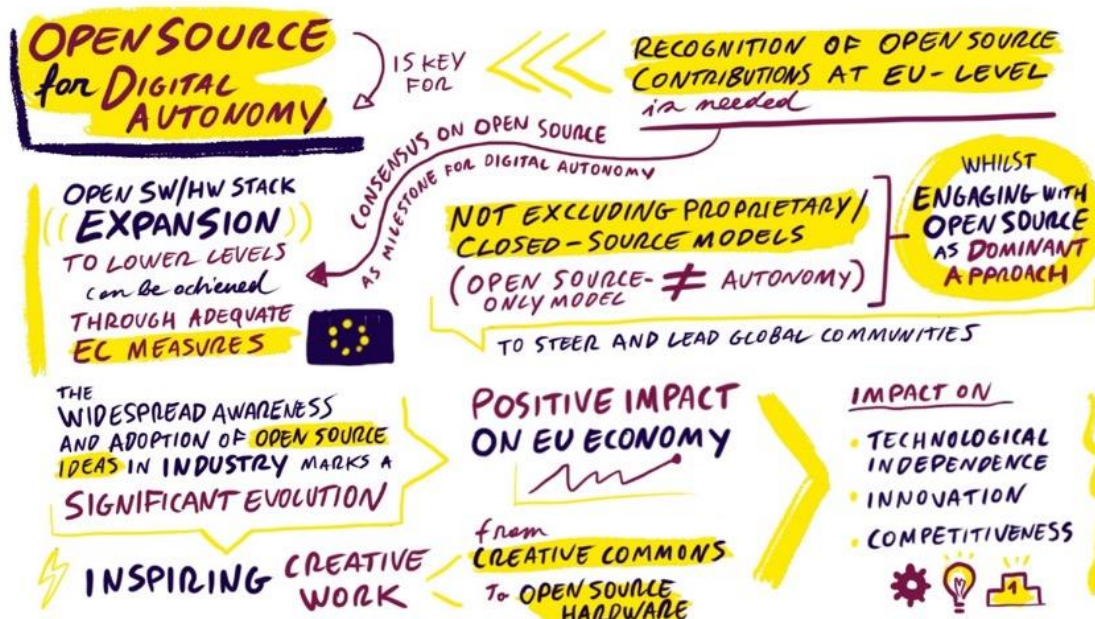 OPEN SOURCE
for DIGITAL
AUTONOMY
IS KEY
FOR
RECOGNITION OF OPEN SOURCE
CONTRIBUTIONS AT EU-LEVEL
is needed
CONSENSUS ON OPEN SOURCE
AS MILESTONE FOR DIGITAL AUTONOMY
OPEN SW/HW STACK
EXPANSION
TO LOWER LEVELS
can be achieved
THROUGH ADEQUATE
EC MEASURES
NOT EXCLUDING PROPRIETARY/
CLOSED-SOURCE MODELS
(OPEN SOURCE- ≠ AUTONOMY)
ONLY MODEL
WHILST
ENGAGING WITH
OPEN SOURCE
AS DOMINANT
APPROACH
TO STEER AND LEAD GLOBAL COMMUNITIES
THE
WIDESPREAD AWARENESS
AND ADOPTION OF OPEN SOURCE
IDEAS IN INDUSTRY MARKS A
SIGNIFICANT EVOLUTION
POSITIVE IMPACT
ON EU ECONOMY
IMPACT ON
• TECHNOLOGICAL
INDEPENDENCE
• INNOVATION
• COMPETITIVENESS
1
INSPIRING CREATIVE
WORK
from
CREATIVE COMMONS
To OPEN SOURCE
HARDWARE